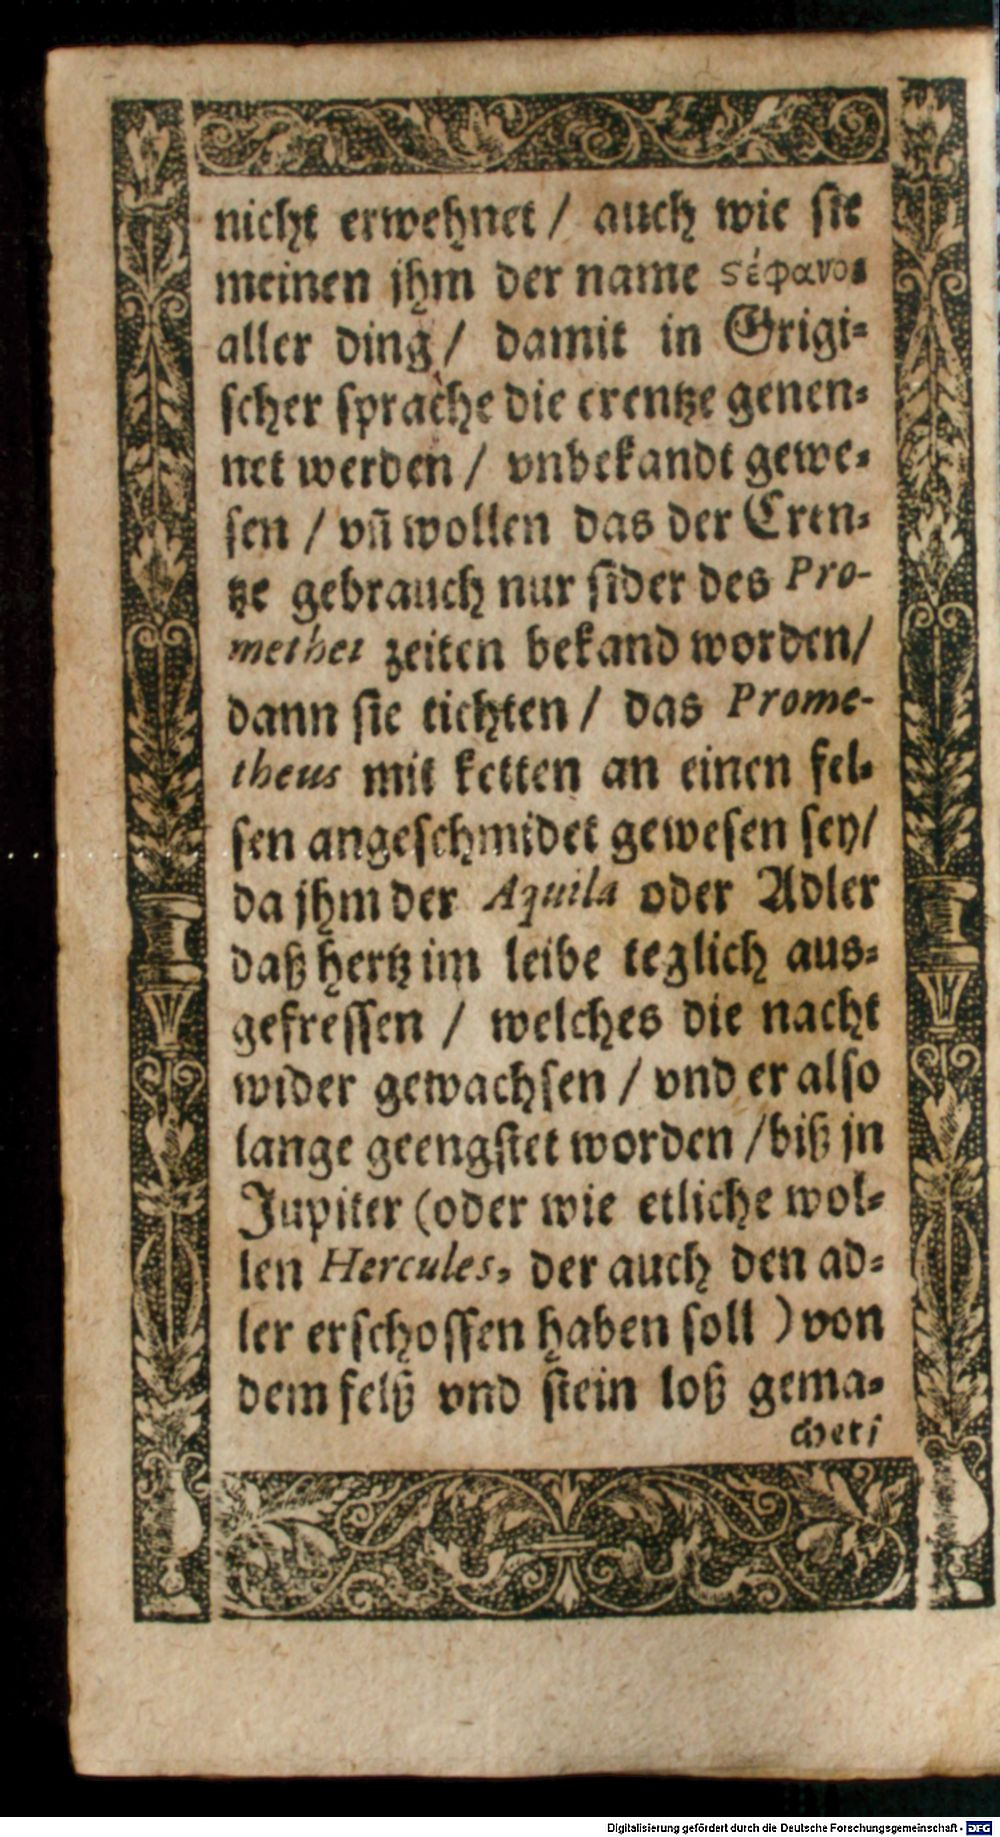 nicht erwehnet / auch wie sie
meinen jhm der name ϛέφανος
aller ding / damit in Grigi=
scher sprache die crentze genen=
net werden / vnbekandt gewe=
sen / vñ wollen das der Cren=
tze gebrauch nur sider des Pro-
methei zeiten bekand worden/
dann sie tichten / das Prome-
theus mit ketten an einen fel=
sen angeschmidet gewesen sey/
da jhm der Aquila oder Adler
daß hertz im leibe teglich aus=
gefressen / welches die nacht
wider gewachsen / vnd er also
lange geengstet worden / biß jn
Jupiter (oder wie etliche wol=
len Hercules, der auch den ad=
ler erschossen haben soll ) von
dem felß vnd stein loß gema=
chet /
Digitalisierung gefördert durch die Deutsche Forschungsgemeinschaft - DFG